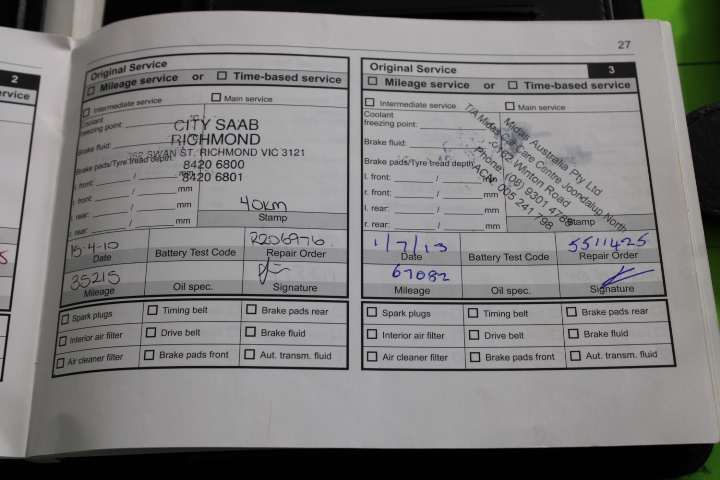 27
2
rvice
Original Service
☐ Mileage service or ☐ Time-based service
☐ Intermediate service ☐ Main service
Coolant
freezing point:
Brake fluid:
Brake pads/Tyre tread depth
l. front: / mm
r. front: / mm
l. rear: / mm
r. rear: / mm
CITY SAAB
RICHMOND
SWAN ST, RICHMOND VIC 3121
8420 6800
8420 6801
40km
Stamp
15-4-10
Date
Battery Test Code
R206976.
Repair Order
35215
Mileage
Oil spec.
Signature
☐ Spark plugs ☐ Timing belt ☐ Brake pads rear
☐ Interior air filter ☐ Drive belt ☐ Brake fluid
☐ Air cleaner filter ☐ Brake pads front ☐ Aut. transm. fluid
Original Service 3
☐ Mileage service or ☐ Time-based service
☐ Intermediate service ☐ Main service
Coolant
freezing point:
Brake fluid:
Brake pads/Tyre tread depth
l. front: / mm
r. front: / mm
l. rear: / mm
r. rear: / mm
Midas Australia Pty Ltd
T/A Midas Car Care Centre Joondalup North
162 Winton Road
Phone: (08) 9301 4788
ACN: 005 241 798
Stamp
1/7/13
Date
Battery Test Code
5511425
Repair Order
67082
Mileage
Oil spec.
Signature
☐ Spark plugs ☐ Timing belt ☐ Brake pads rear
☐ Interior air filter ☐ Drive belt ☐ Brake fluid
☐ Air cleaner filter ☐ Brake pads front ☐ Aut. transm. fluid